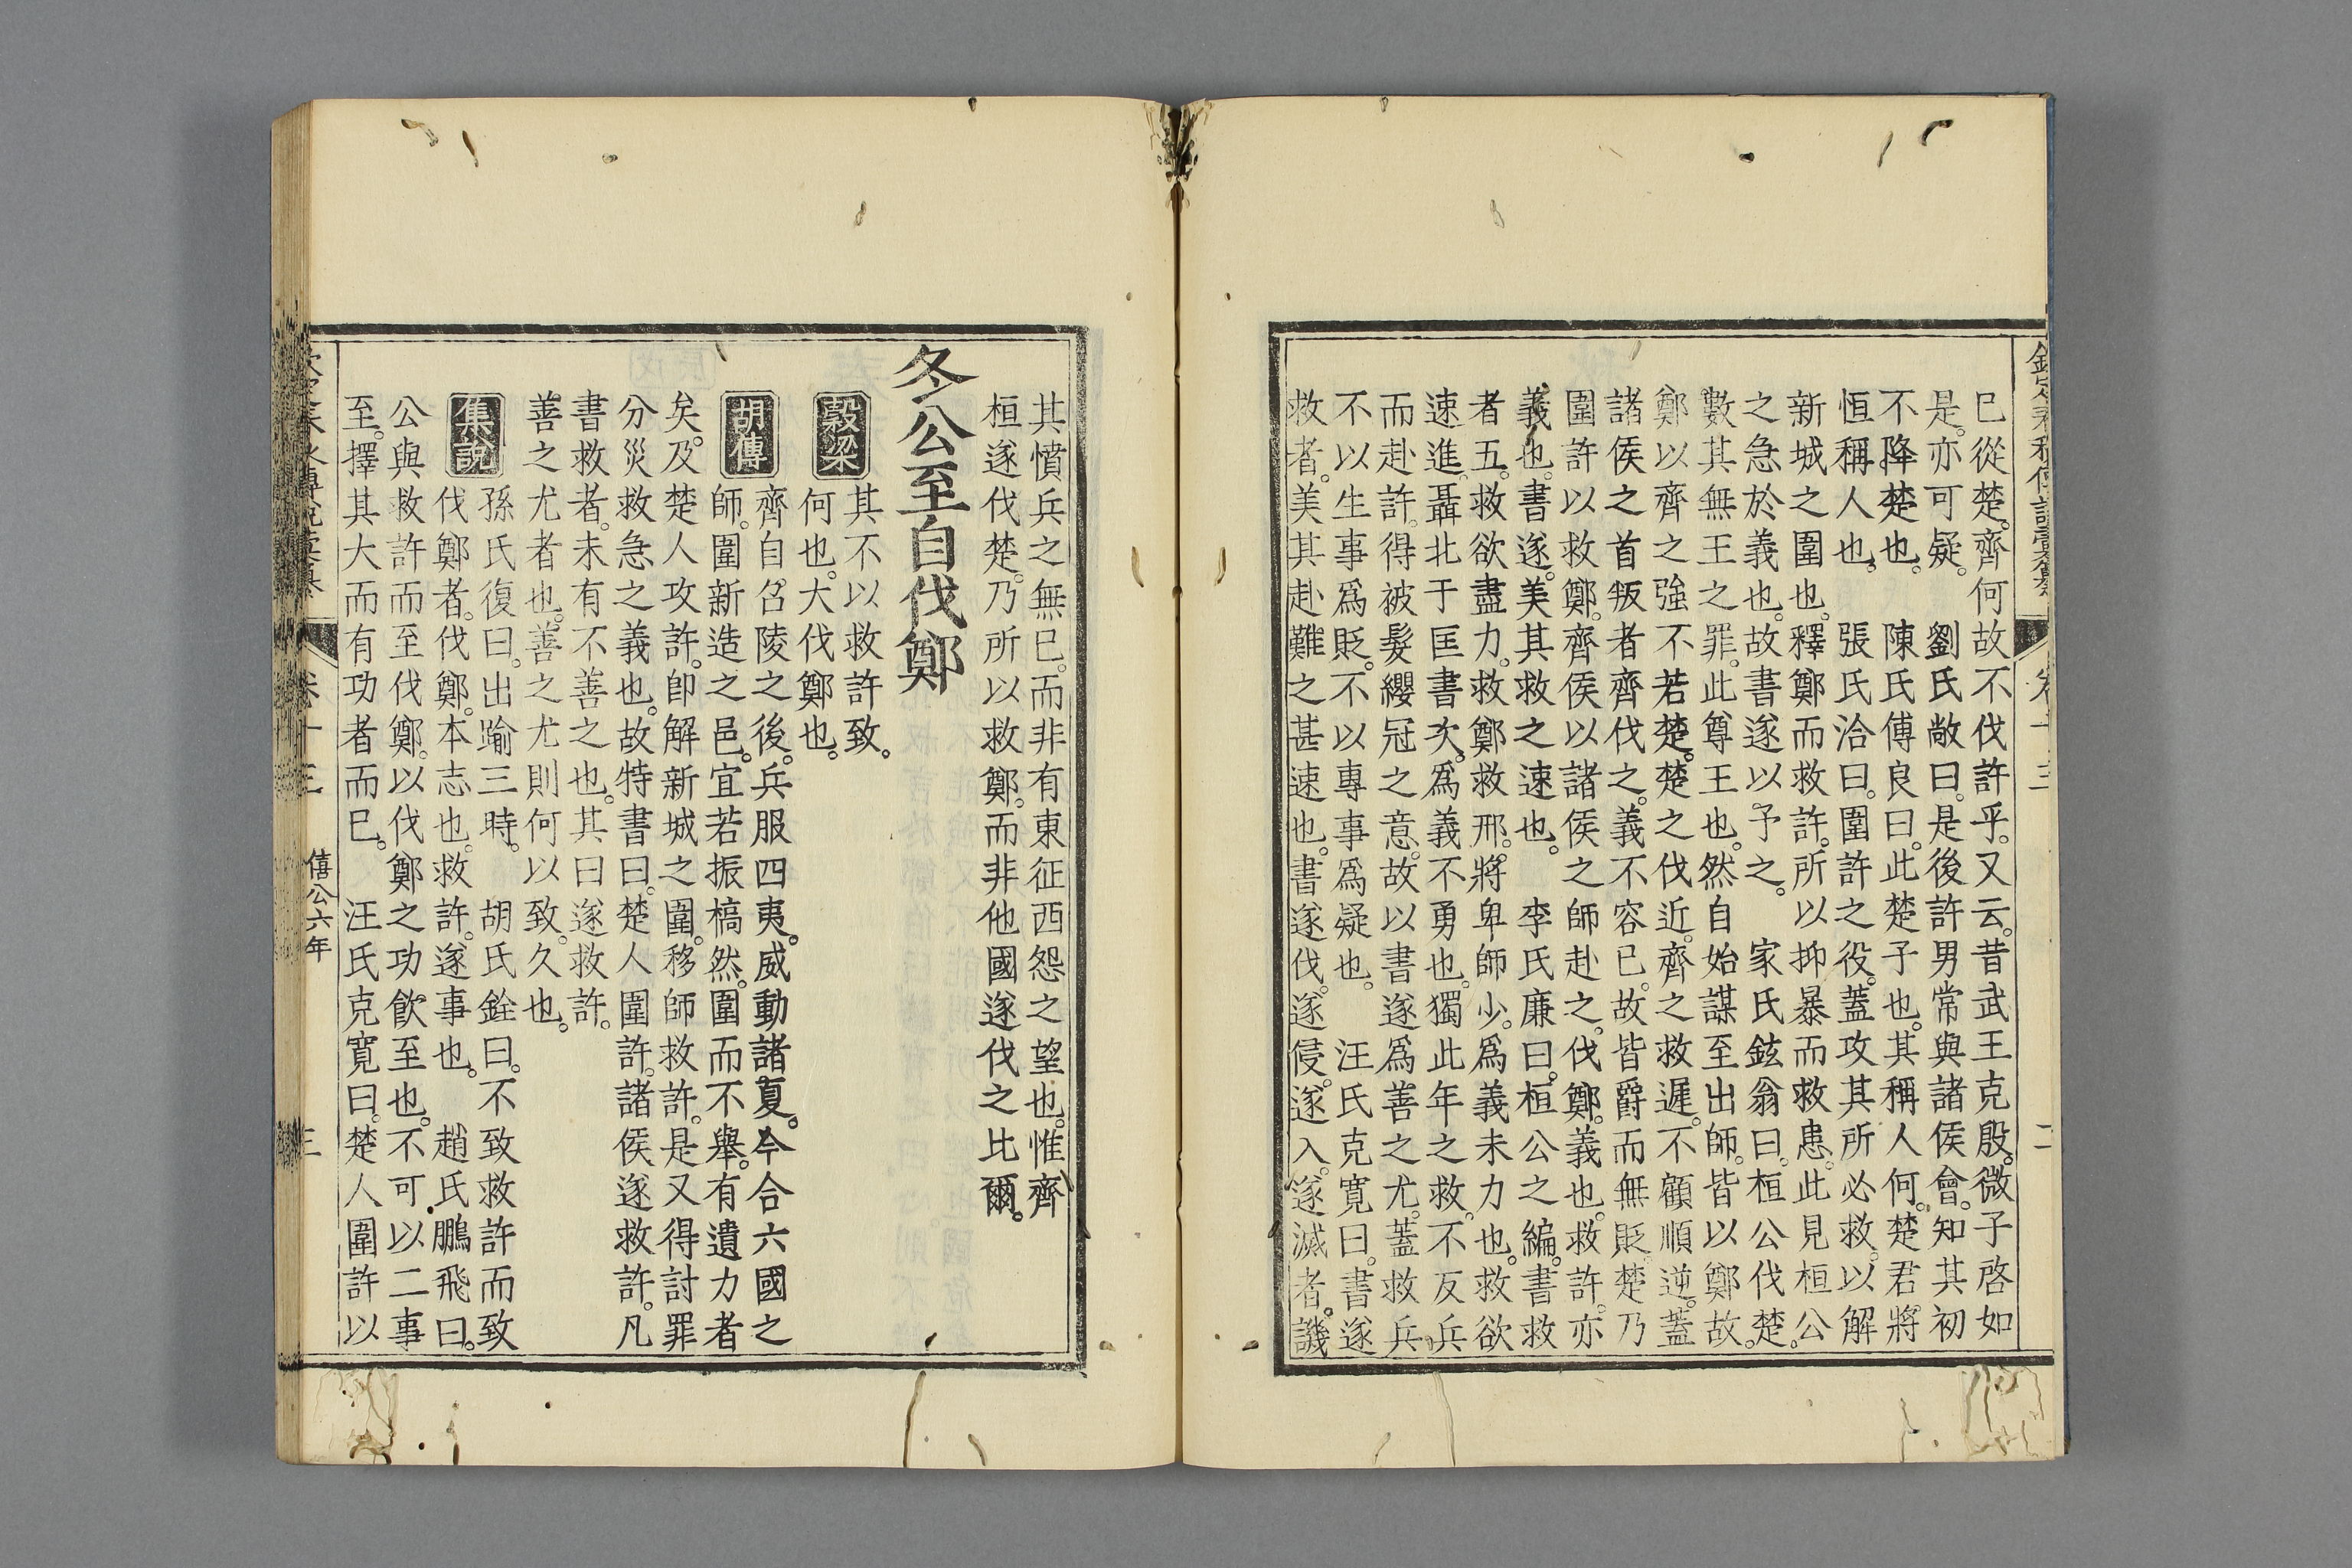 巳從楚。齊何故不伐許乎。又云。昔武王克殷。微子啓如
是。亦可疑。　劉氏敞曰。是後許男常與諸侯會。知其初
不降楚也。　陳氏傅良曰。此楚子也。其稱人何。楚君將
恒稱人也。　張氏洽曰。圍許之役。蓋攻其所必救。以解
新城之圍也。釋鄭而救許。所以抑暴而救患。此見桓公
之急於義也。故書遂以予之。　家氏鉉翁曰。桓公伐楚。
數其無王之罪。此尊王也。然自始謀至出師。皆以鄭故。
鄭以齊之強不若楚。楚之伐近。齊之救遲。不顧順逆。蓋
諸侯之首叛者齊伐之。義不容已。故皆爵而無貶。楚乃
圍許以救鄭。齊侯以諸侯之師赴之。伐鄭。義也。救許。亦
義也。書遂。美其救之速也。　李氏廉曰。桓公之編。書救
者五。救欲盡力。救鄭救邢。將卑師少。爲義未力也。救欲
速進。聶北于匡書次。爲義不勇也。獨此年之救。不反兵
而赴許。得被髮纓冠之意。故以書遂爲善之尤。蓋救兵
不以生事爲貶。不以專事爲疑也。　汪氏克寬曰。書遂
救者。美其赴難之甚速也。書遂伐。遂侵。遂入。遂滅者。譏
其憤兵之無巳。而非有東征西怨之望也。惟齊
桓遂伐楚。乃所以救鄭。而非他國遂伐之比爾。
冬公至自伐鄭
穀梁　其不以救許致。
何也。大伐鄭也。
胡傳　齊自召陵之後。兵服四夷。威動諸夏。今合六國之
師。圍新造之邑。宜若振槁然。圍而不舉。有遺力者
矣。及楚人攻許。卽解新城之圍。移師救許。是又得討罪
分災救急之義也。故特書曰。楚人圍許。諸侯遂救許。凡
書救者。未有不善之也。其曰遂救許。
善之尤者也。善之尤則何以致。久也。
集說　孫氏復曰。出踰三時。　胡氏銓曰。不致救許而致
伐鄭者。伐鄭。本志也。救許。遂事也。　趙氏鵬飛曰。
公與救許而至伐鄭。以伐鄭之功飮至也。不可以二事
至。擇其大而有功者而巳。　汪氏克寬曰。楚人圍許以
僖公六年
三